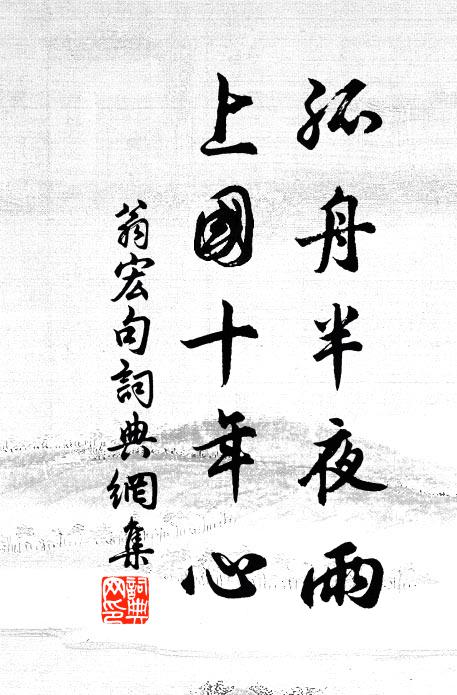 孤舟半夜雨
上國十年心
翁宏句詞典網集
詞典網印